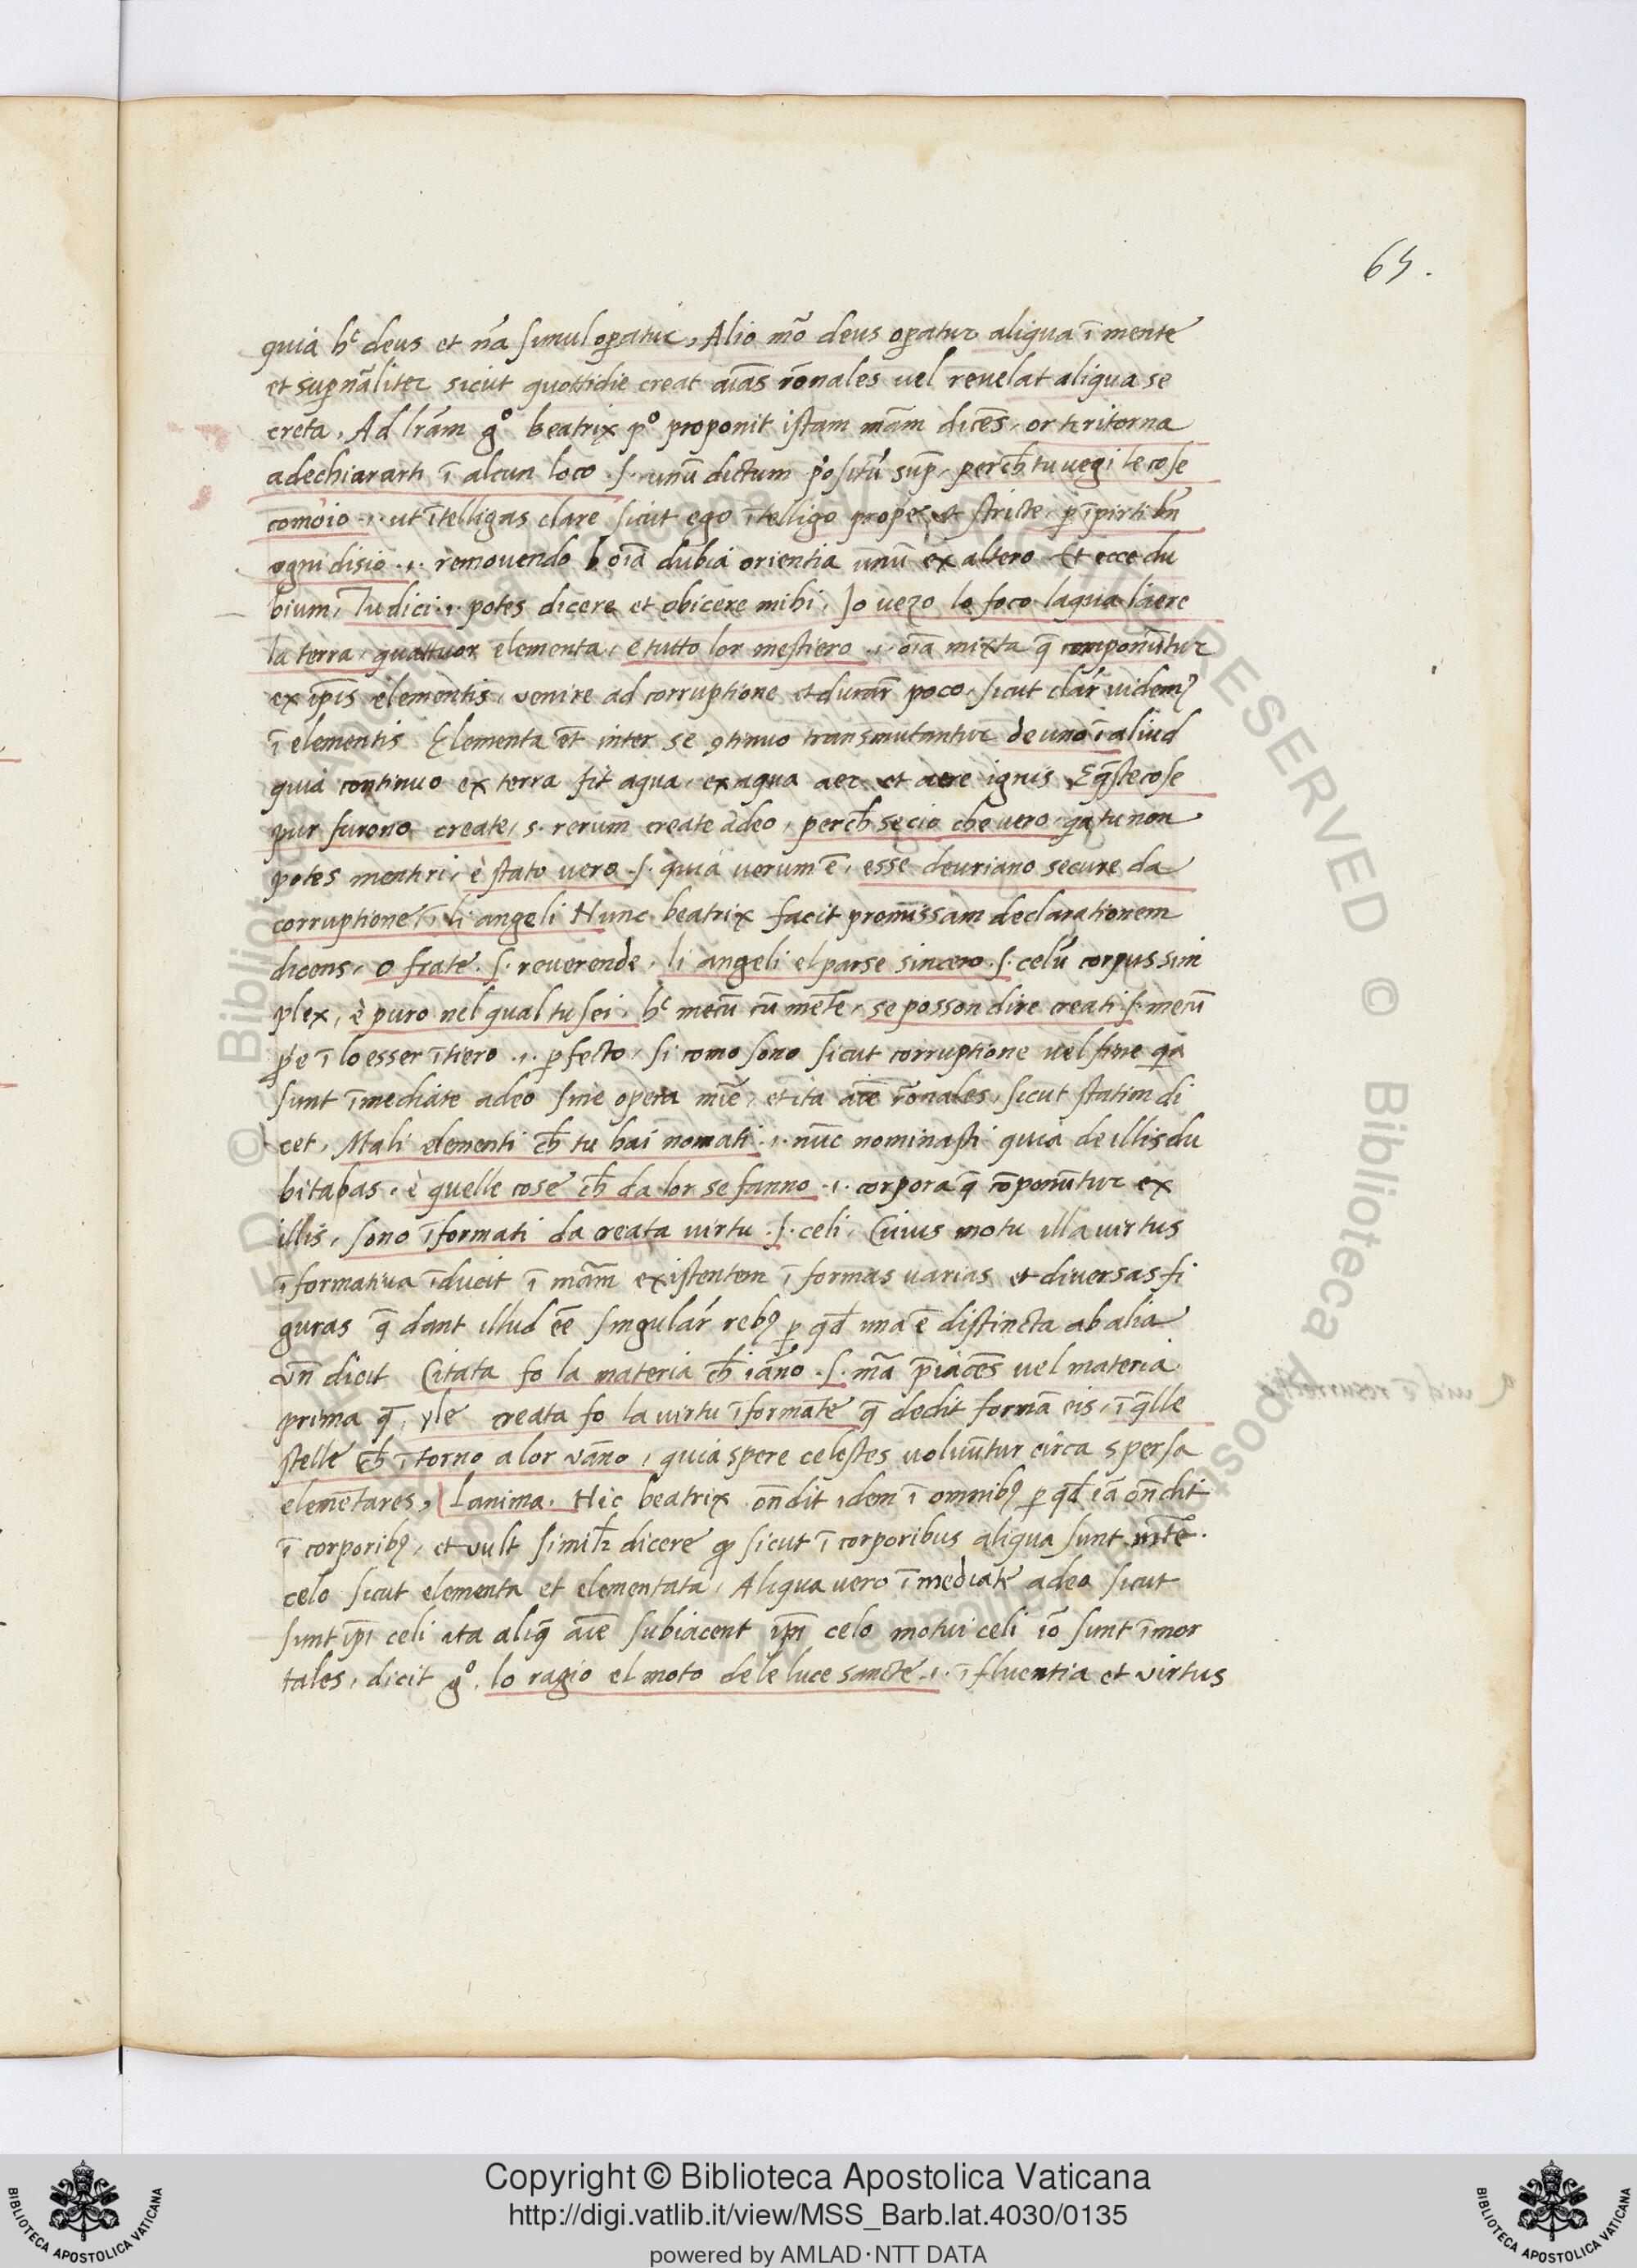 65.
quia hᵗ deus et nā simul operatur, Alio mō deus operatur aliqua ī mente
et supnāliter sicut quottidie creat aīas rōnales vel revelat aliqua se
creta, Ad lrām gº beatrix pº proponit istam mām dicēs, or ti ritorna
a dechiararti ī alcun loco .s. unū dictum positū sup, perch̄ tu vegi le cose
com̄ io .i. ut ītelligas clare sicut ego ītelligo prope et stricte, p īpirti bn̄
ogni disio .i. removendo h oīa dubia orientia unū ex altero Et ecce du
bium, Tu dici .i. potes dicere et obicere mihi, Jo vezo lo foco laqua laere
la terra, quattuor elementa, e tutto lor mestiero .i. oīa mixta q̄ componūtur
ex ip̄is elementis, venire ad corruptione et durar̄ poco, sicut clar̄ videmꝰ
ī elementis Elementa et̄ inter se ꝯtinuo transmutantur de uno ī aliud
quia continuo ex terra fit aqua, ex aqua aer et aere ignis E q̄ste cose
pur furono create, s. rerum create a deo, perch̄ se cio che vero, qa tu non
potes mentiri, è stato vero .s. quia verum ē, esse devriano secure da
corruptione, li angeli Nunc beatrix facit promissam declarationem
dicens, O frate .s. reverende, li angeli el parse sincero .s. celū corpus sim
plex, è puro nel qual tu sei, hᵗ mecū cū mēte, se posson dire creati .s. mecū
ꝑe ī lo esser ītiero .i. ꝑfecto, si como sono sicut corruptione vel fine qa
sunt īmediate a deo sine opera mīe, et ita aīe rōnales, sicut statim di
cet, Ma li elementi ch̄ tu hai nomati .i. nūc nominasti quia de illis du
bitabas, è quelle cose ch̄ da lor se fanno .i. corpora q̄ cōponūtur ex
illis, sono īformati da creata virtu .s. celi, Cuius motu illa virtus
īformativa īducit ī mām existentem ī formas varias et diversas fi
guras q̄ dant illud eē singular̄ rebꝰ p qd̄ una ē distincta ab alia
un̄ dicit Citata fo la materia ch̄ iāno .s. mā p̄iacēs vel materia
prima q̄, yle creata fo la virtu īformāte q̄ dedit formā eis, ī q̄lle
stelle ch̄ ītorno a lor vāno, quia spere celestes volvūtur circa spersa
elemētares, Lanima. Hic beatrix on̄dit idem ī omnibꝰ p qd̄ iā on̄dit
ī corporibꝰ, et vult simil̄r dicere ꝙ sicut ī corporibus aliqua sunt mt̄e.
celo sicut elementa et elementata, Aliqua vero īmediate a deo sicut
sunt ip̄i celi ita aliq̄ aīe subiacent ip̄i celo motui celi iō sunt īmor
tales, dicit gº, lo ragio el moto de le luce sancte .i. īfluentia et virtus
Copyright © Biblioteca Apostolica Vaticana
http://digi.vatlib.it/view/MSS_Barb.lat.4030/0135
powered by AMLAD·NTT DATA